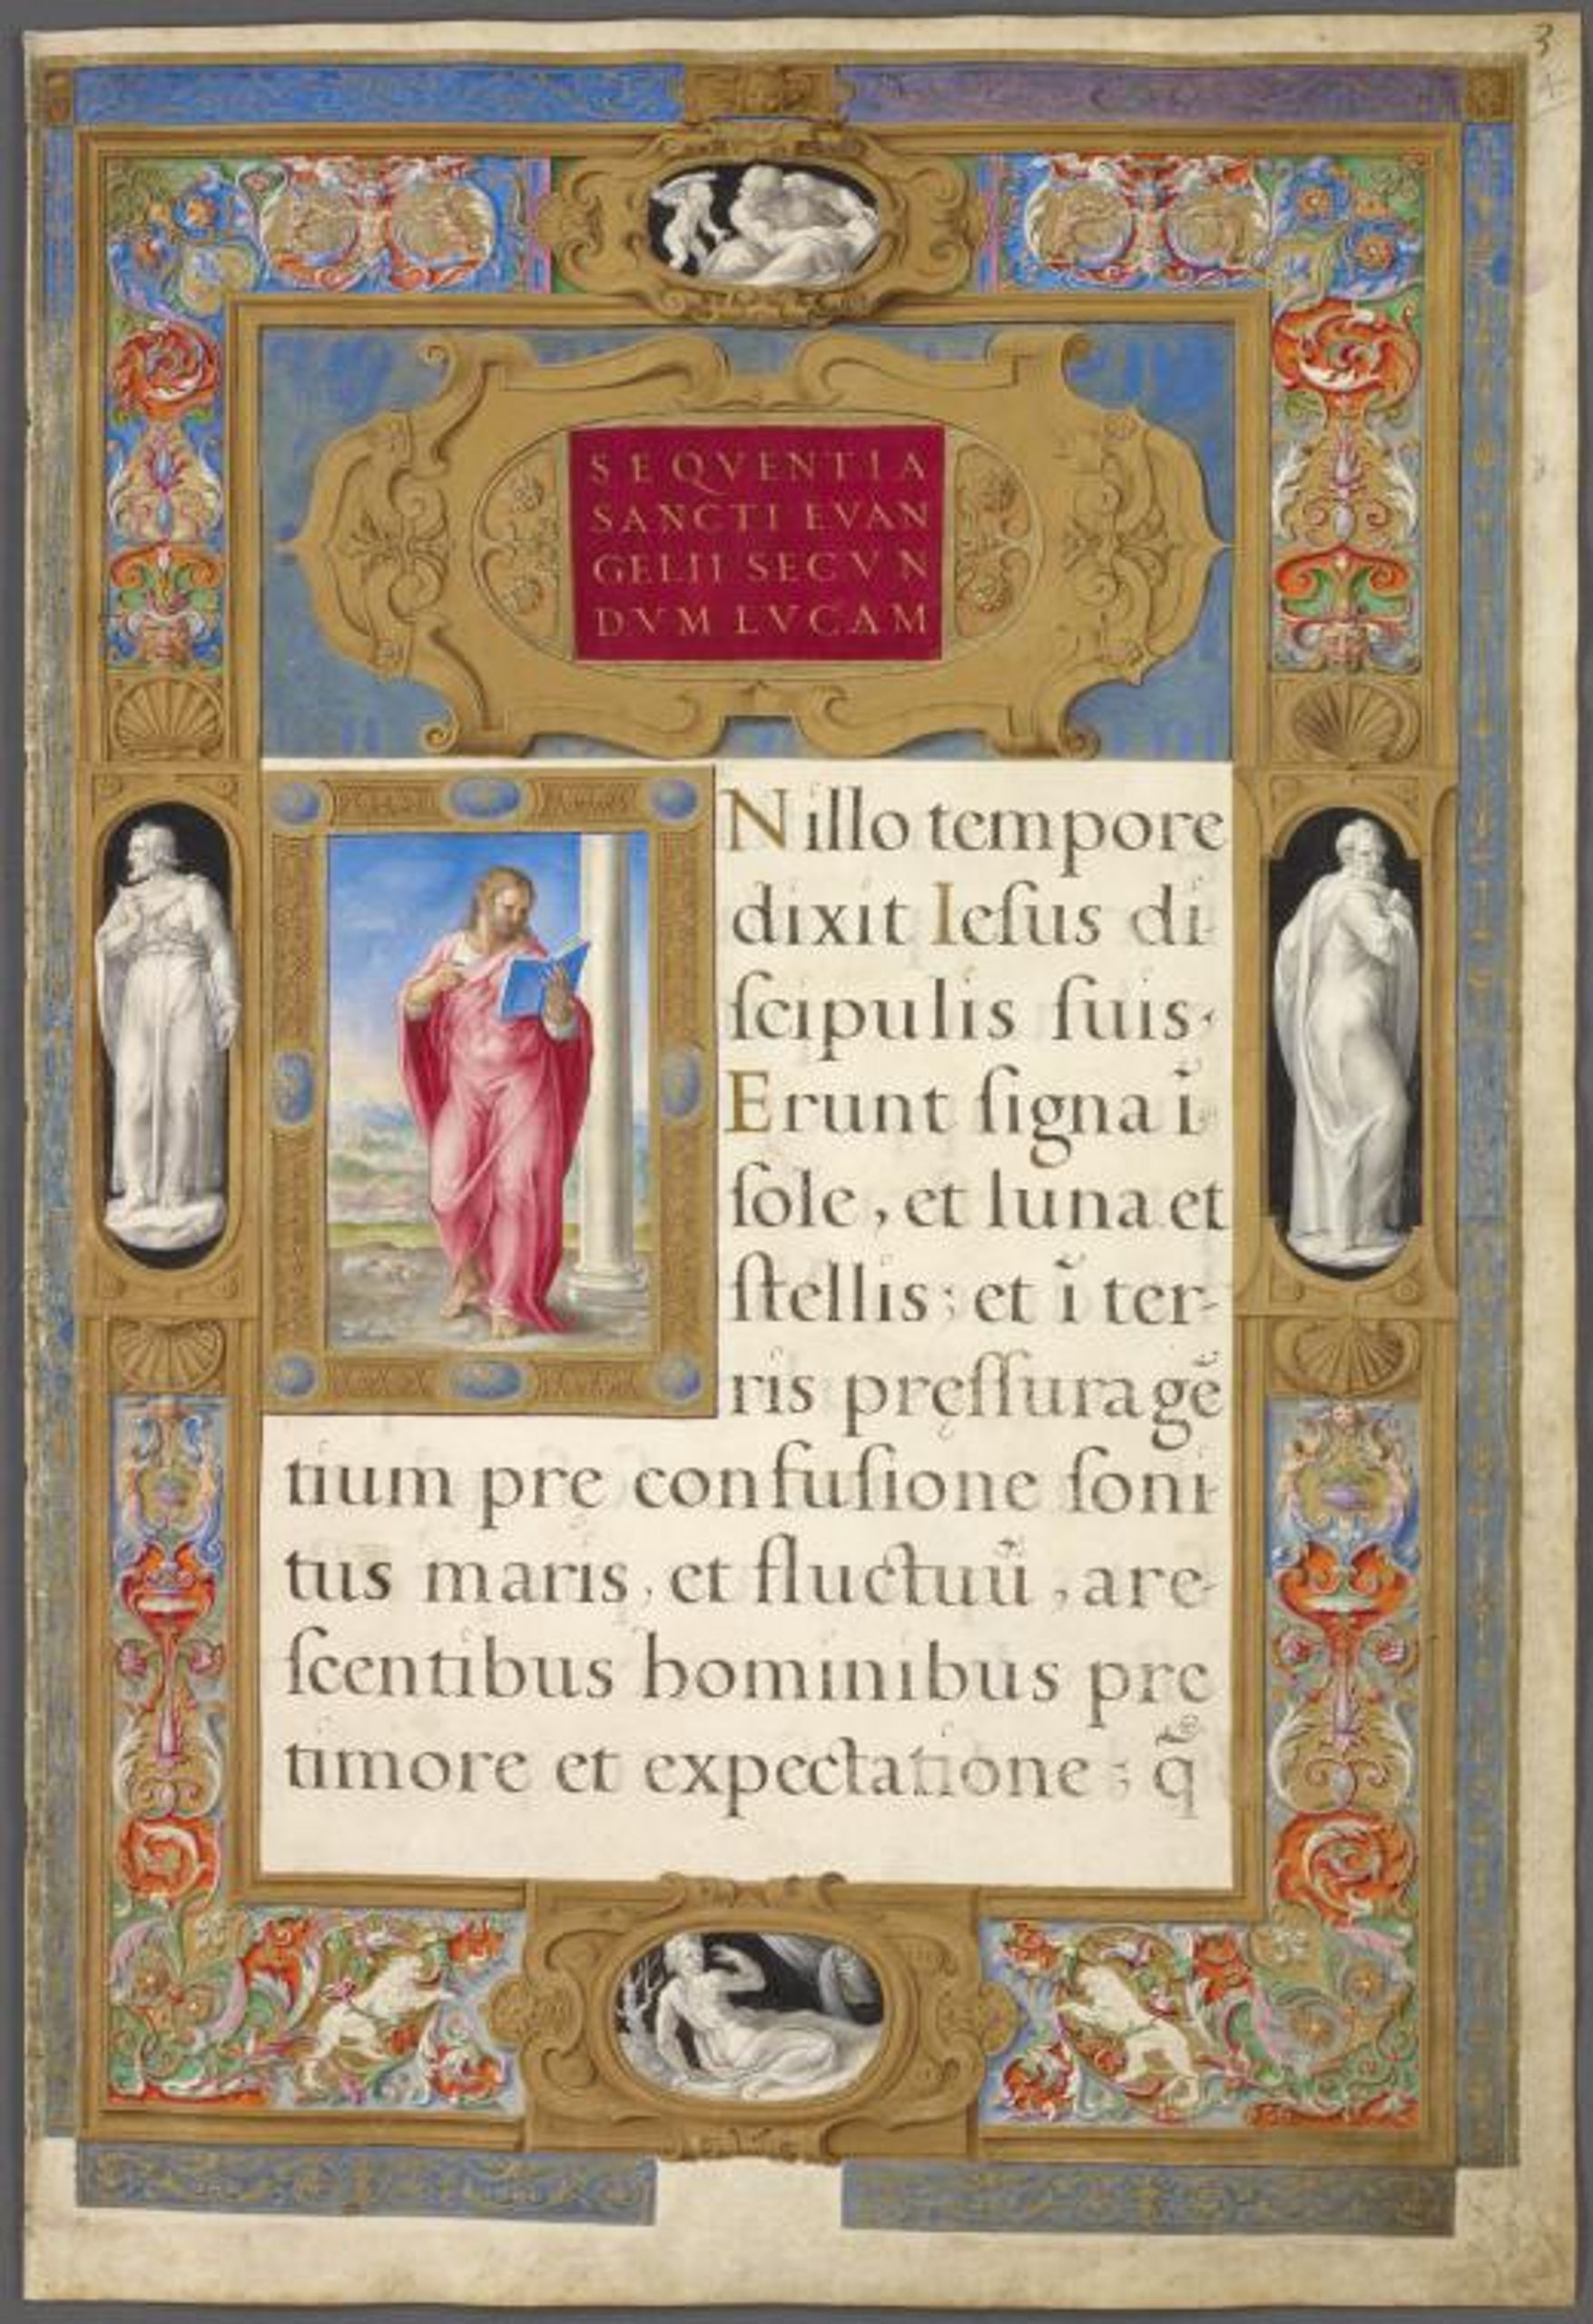 3
4
SEQVENTIA
SANCTI EVAN
GELII SECVN
DVM LVCAM
N illo tempore
dixit Ieſus di-
ſcipulis ſuis.
Erunt ſigna ī
ſole, et luna et
ſtellis; et ī ter-
ris pręſſura gē
tium pre confuſione ſoni-
tus maris, et fluctuū, are-
ſcentibus hominibus pre
timore et expectatione; q̄